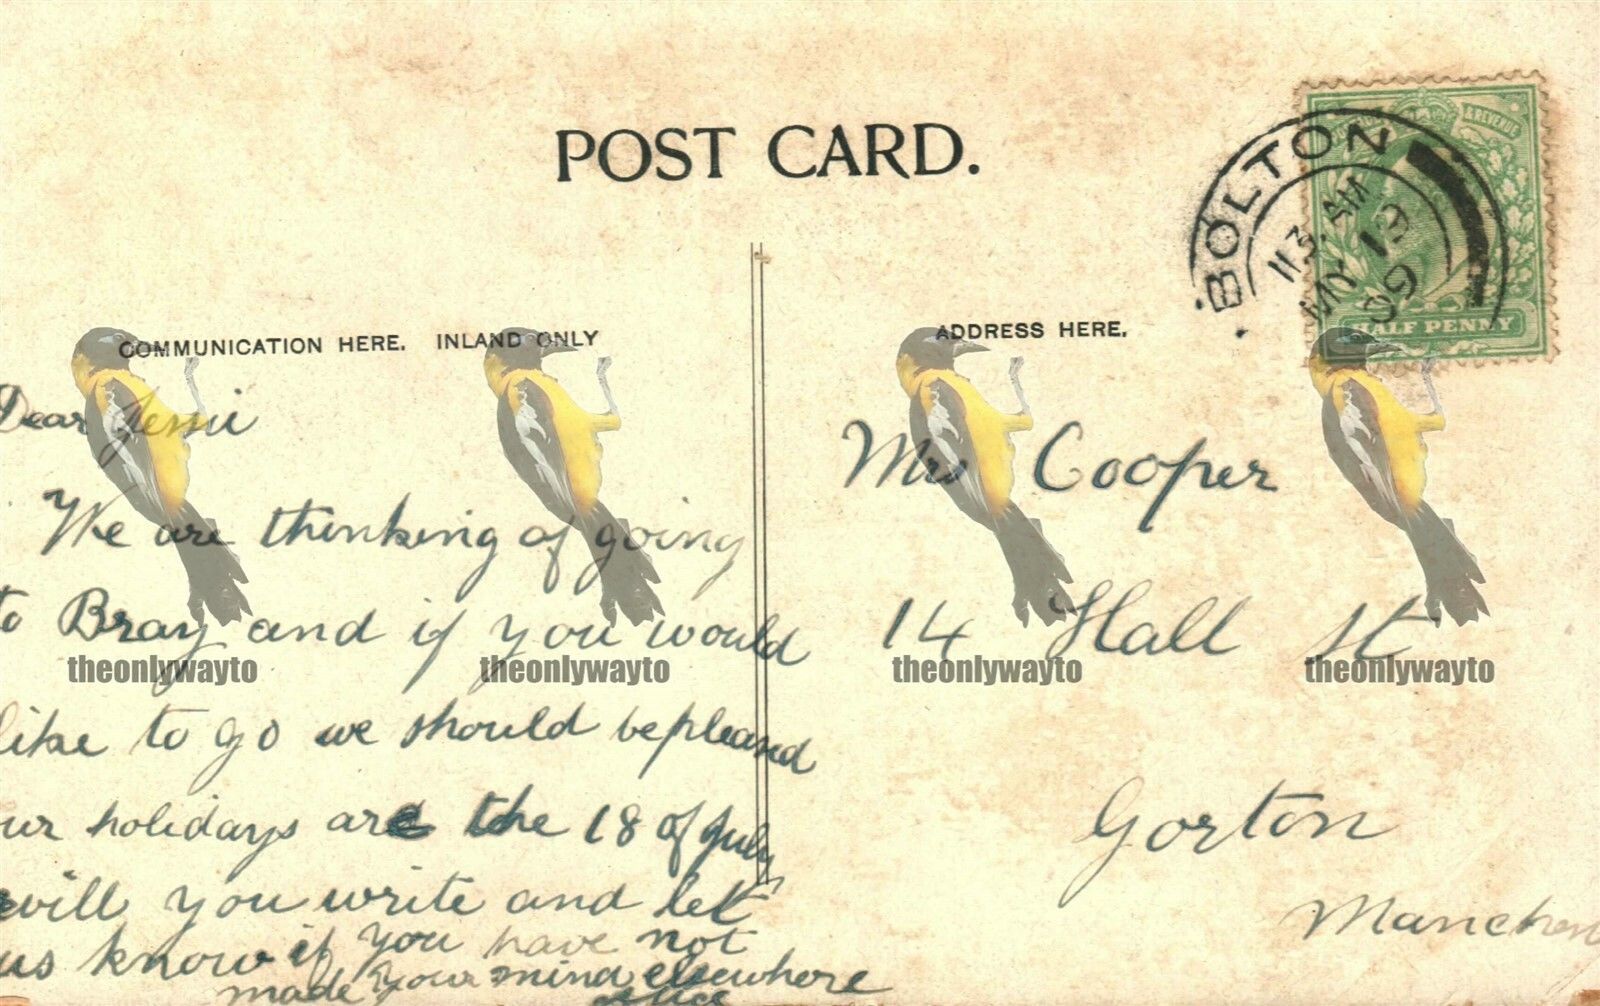 POST CARD.
BOLTON
MY 13
09
& REVENUE
HALF PENNY
COMMUNICATION HERE. INLAND ONLY
ADDRESS HERE.
Dear Jessie
We are thinking of going
to Bray and if you would
like to go we should be pleased
our holidays are the 18 of July
will you write and let
us know if you have not
made your mind elsewhere
Mrs Cooper
14 Hall St
Gorton
Manchester
theonlywayto
theonlywayto
theonlywayto
theonlywayto